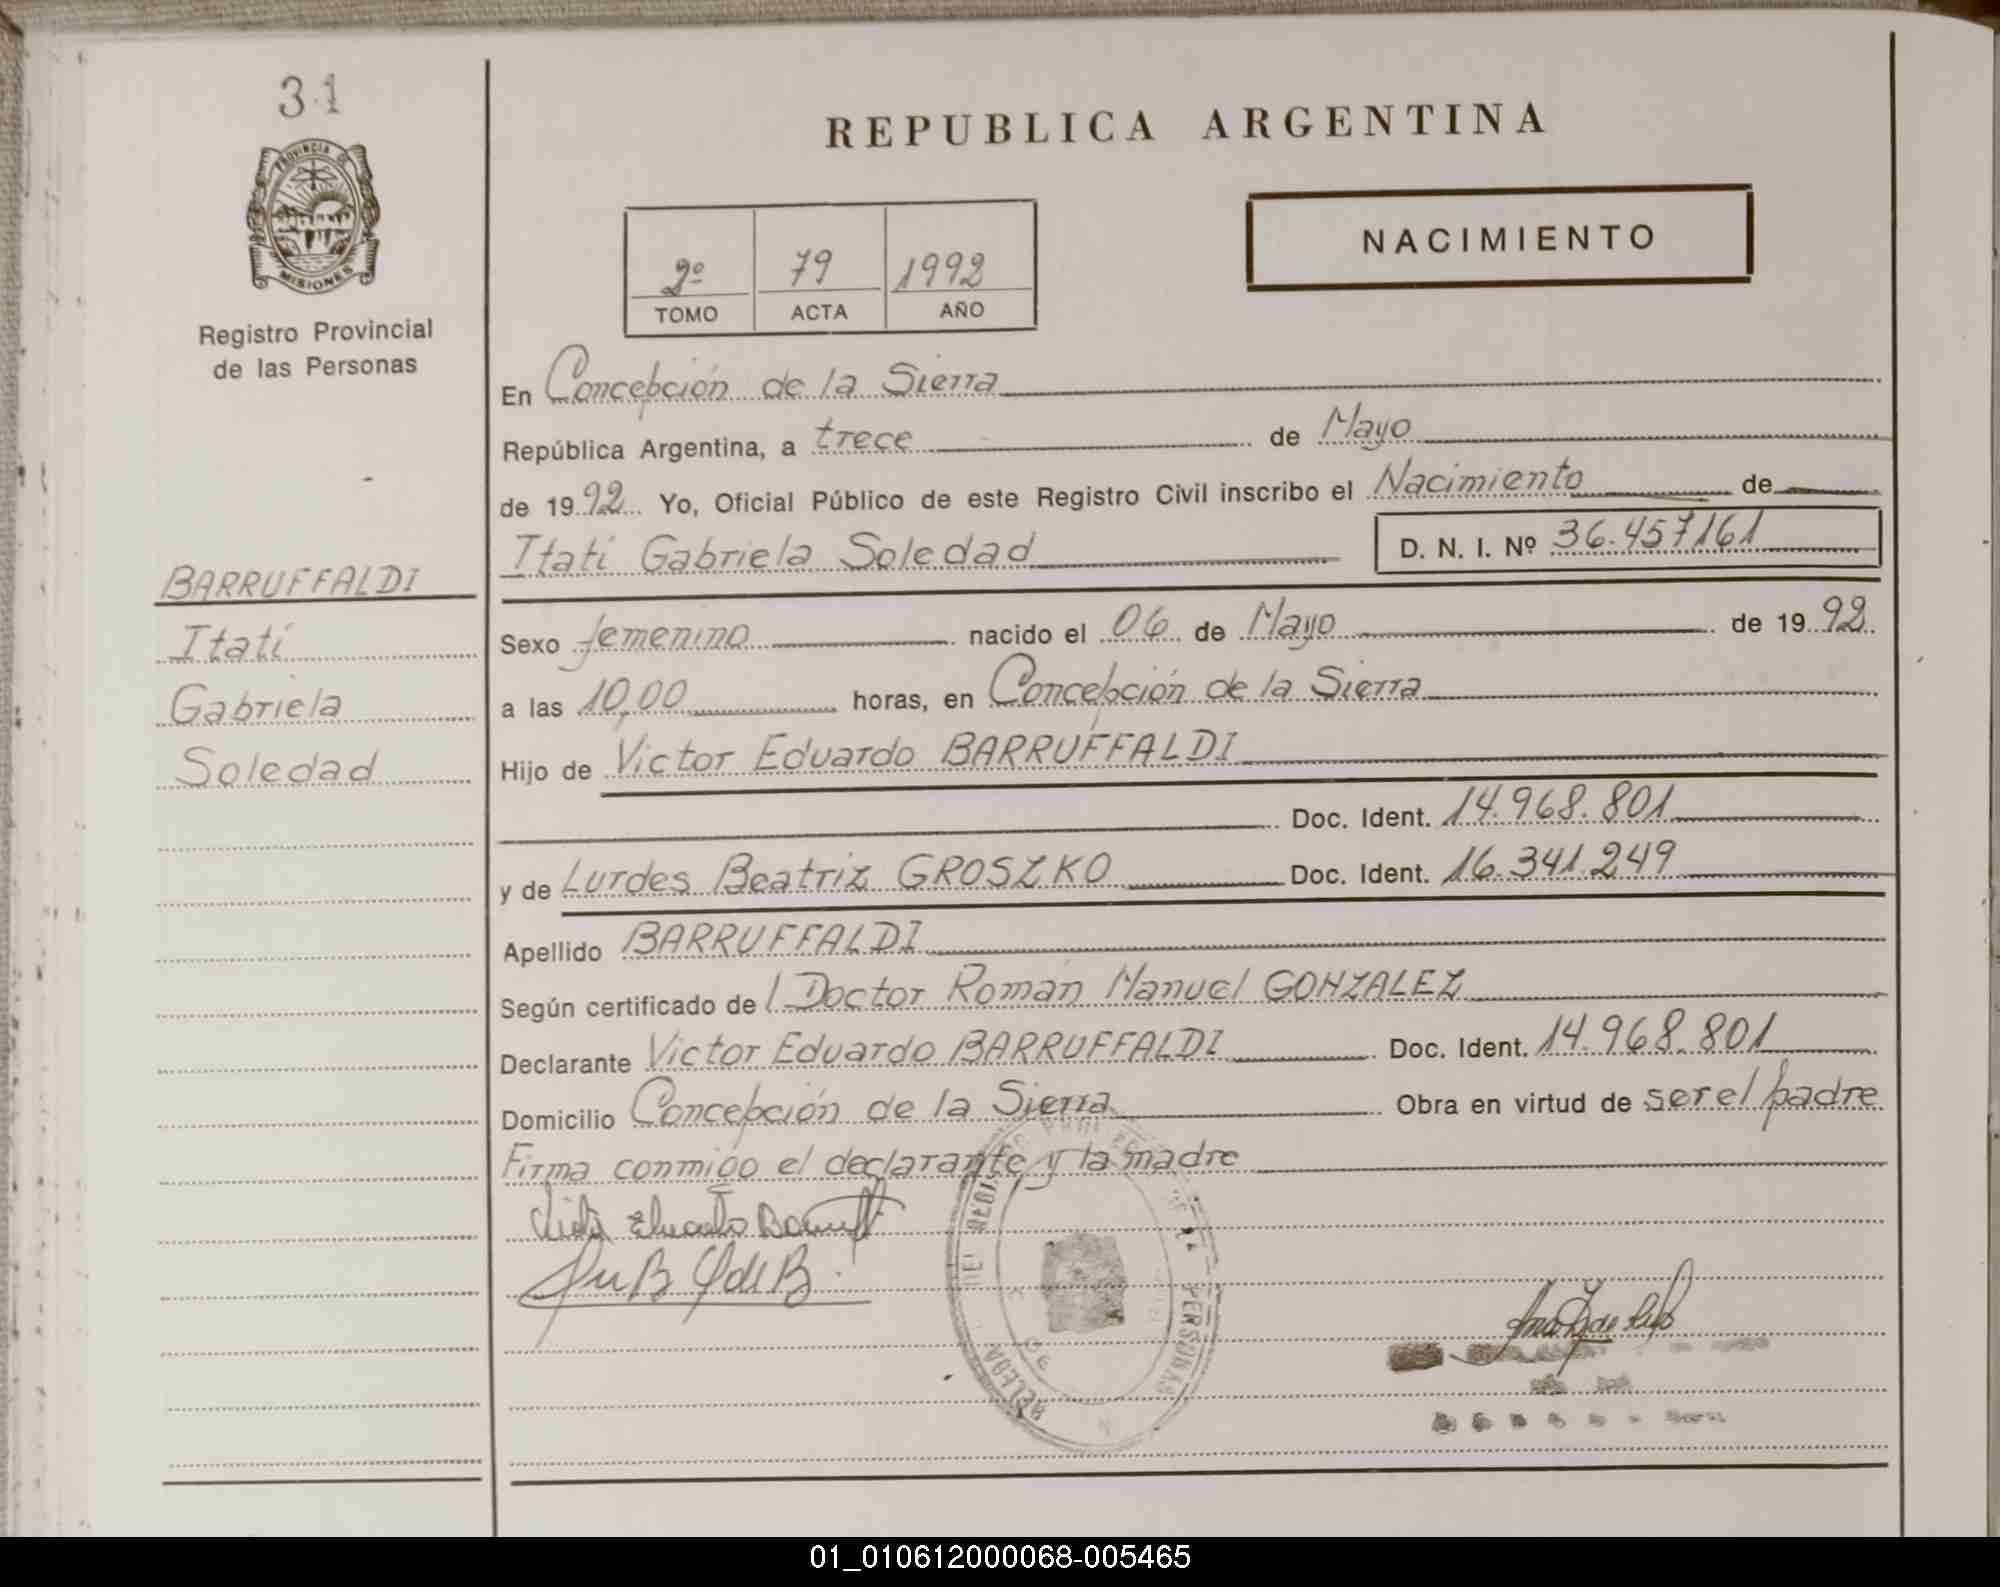 31
PROVINCIA DE
MISIONES
Registro Provincial
de las Personas
REPUBLICA ARGENTINA
NACIMIENTO
2º 79 1992
TOMO ACTA AÑO
En Concepción de la Sierra
República Argentina, a trece de Mayo
de 1992 Yo, Oficial Público de este Registro Civil inscribo el Nacimiento de
Itatí Gabriela Soledad D. N. I. Nº 36.457161
BARRUFFALDI
Itatí
Gabriela
Soledad
Sexo femenino nacido el 06 de Mayo de 1992
a las 10,00 horas, en Concepción de la Sierra
Hijo de Victor Eduardo BARRUFFALDI
Doc. Ident. 14.968.801
y de Lurdes Beatriz GROSZKO Doc. Ident. 16.341.249
Apellido BARRUFFALDI
Según certificado de l Doctor Román Manuel GONZALEZ
Declarante Victor Eduardo BARRUFFALDI Doc. Ident. 14.968.801
Domicilio Concepción de la Sierra Obra en virtud de ser el padre
Firma conmigo el declarante y la madre
PERSONAS
01_010612000068-005465